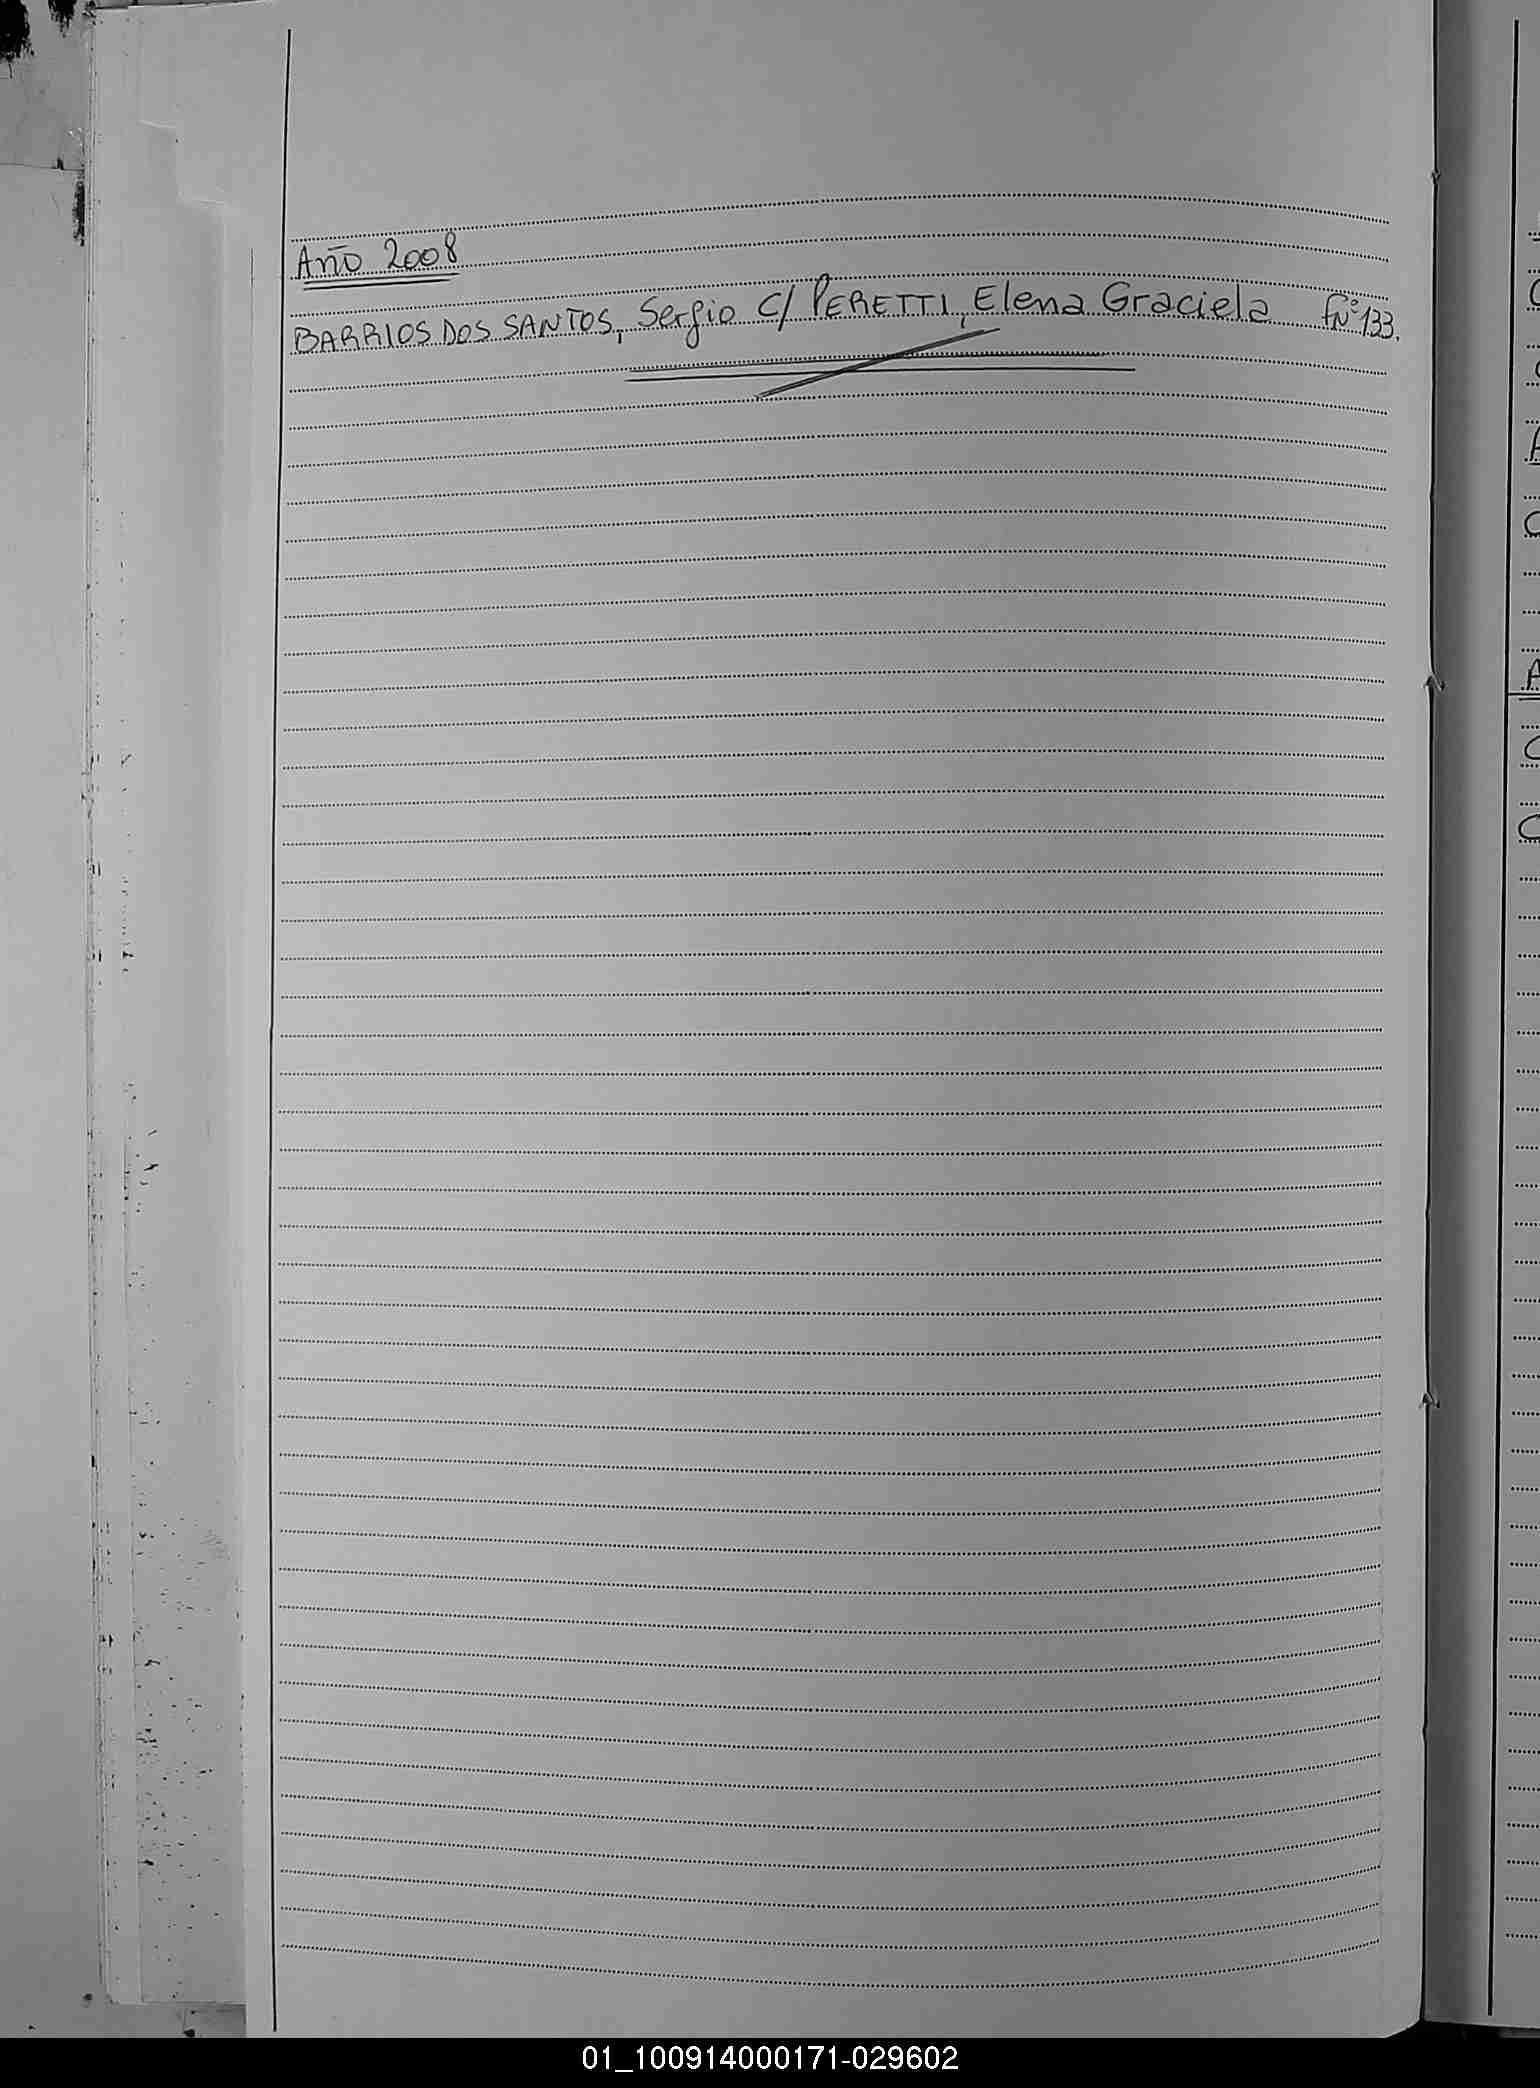 Año 2008
BARRIOS DOS SANTOS, Sergio C/ PERETTI, Elena Graciela fNº133.
01_100914000171-029602